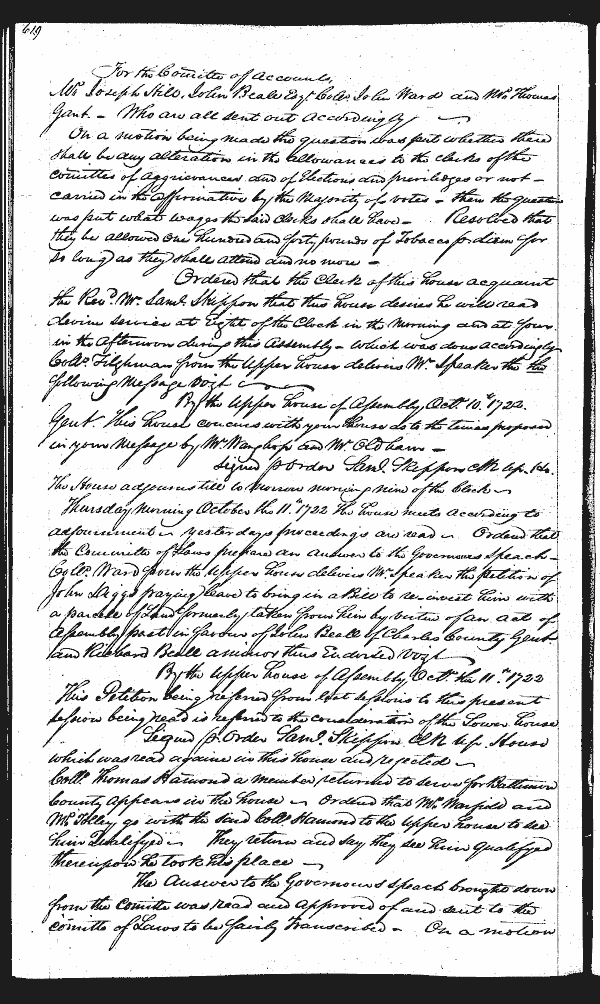 619
For the Comitte of Accounts,
Mr. Joseph Hill, John Beale Esqr. Collo. John Ward and Mr. Thomas
Gant. - Who are all sent out Accordingly
On a motion being made the question was put whether there
shall be any alteration in the allowances to the clerks of the
comittes of Aggrievances and of Elections and priviledges or not -
carried in the affirmative by the Majority of votes - then the question
was put what wages the said Clerks shall have - Resolved that
they be allowed one hundred and forty pounds of Tobacco p diem for
so long as they shall attend and no more -
Ordered that the Clerk of this house acquaint
the Revd. Mr. Saml. Skippon that this house desires he will read
devine service at Eight of the Clock in the Morning and at four
in the Afternoon during this Assembly - which was done accordingly
Collo. Tilghman from the Upper house delivers Mr. Speaker the the
following Message vizt
By the Upper house of Assembly Octr. 10th. 1722.
Gent. This house concurrs with your house as to the times proposed
in your Message by Mr. Manghop and Mr. Oldham -
Signed p Order Saml. Skippon Clk Up. Ho.
The House adjourns till to morrow morning nine of the Clock
Thursday Morning October the 11th. 1722 The house meets according to
adjournment yesterdays proceedings are read Ordered that
the Committe of Laws prepare an answer to the Governours speech -
Collo. Ward from the Upper house delivers Mr. Speaker the petition of
John Jaggs praying leave to bring in a Bill to re-invest him with
a parcele of Land formerly taken from him by virtue of an act of
Assembly past in favour of John Beall of Charles County Gent
and Richard Beall a minor thus Endorsed vizt
By the Upper house of Assembly Octr. the 11th. 1722
This Petition being referred from last sessions to this present
session being read is referred to the consideration of the Lower House
Signed p. Order Saml. Skippon Clk Up. House
which was read againe in this house and rejected
Collo. Thomas Hamond a member returned to serve for Baltimore
County appears in the house Ordered that Mr. and
Mr. Tolley go with the said Collo. Hamond to the Upper house to see
him Qualifyed They return and say they see him Qualifyed
thereupon he took his place
The Answer to the Governours speech brought down
from the Comitte was read and approved of and sent to the
comitte of Laws to be fairly Transcribed - On a motion